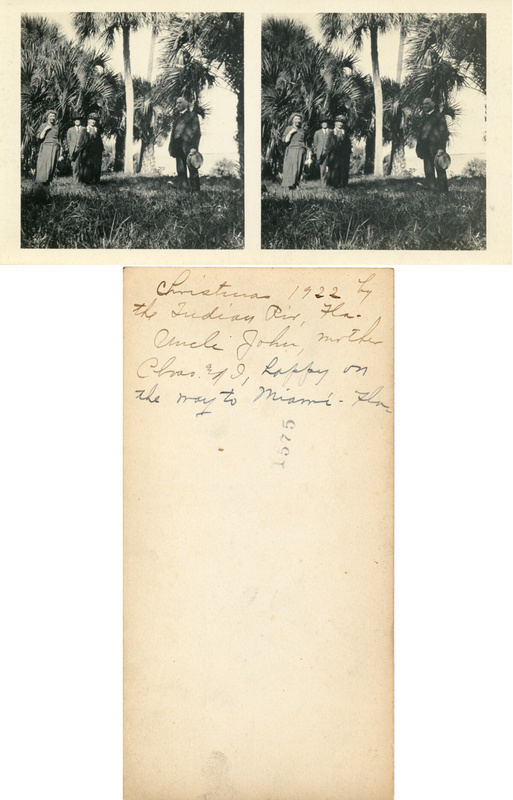 Christmas 1922 by
the Indian Riv, Fla.
Uncle John, mother
Chas. & I, happy on
the way to Miami - Fla-
1575